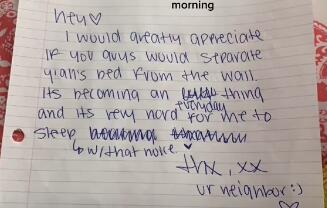 morning
hey♡
I would greatly appreciate
if you guys would separate
y'alls bed from the wall.
Its becoming an everyday thing
and its very hard for me to
sleep
↳ w/that noise ♥
thx, xx
ur neighbor:)